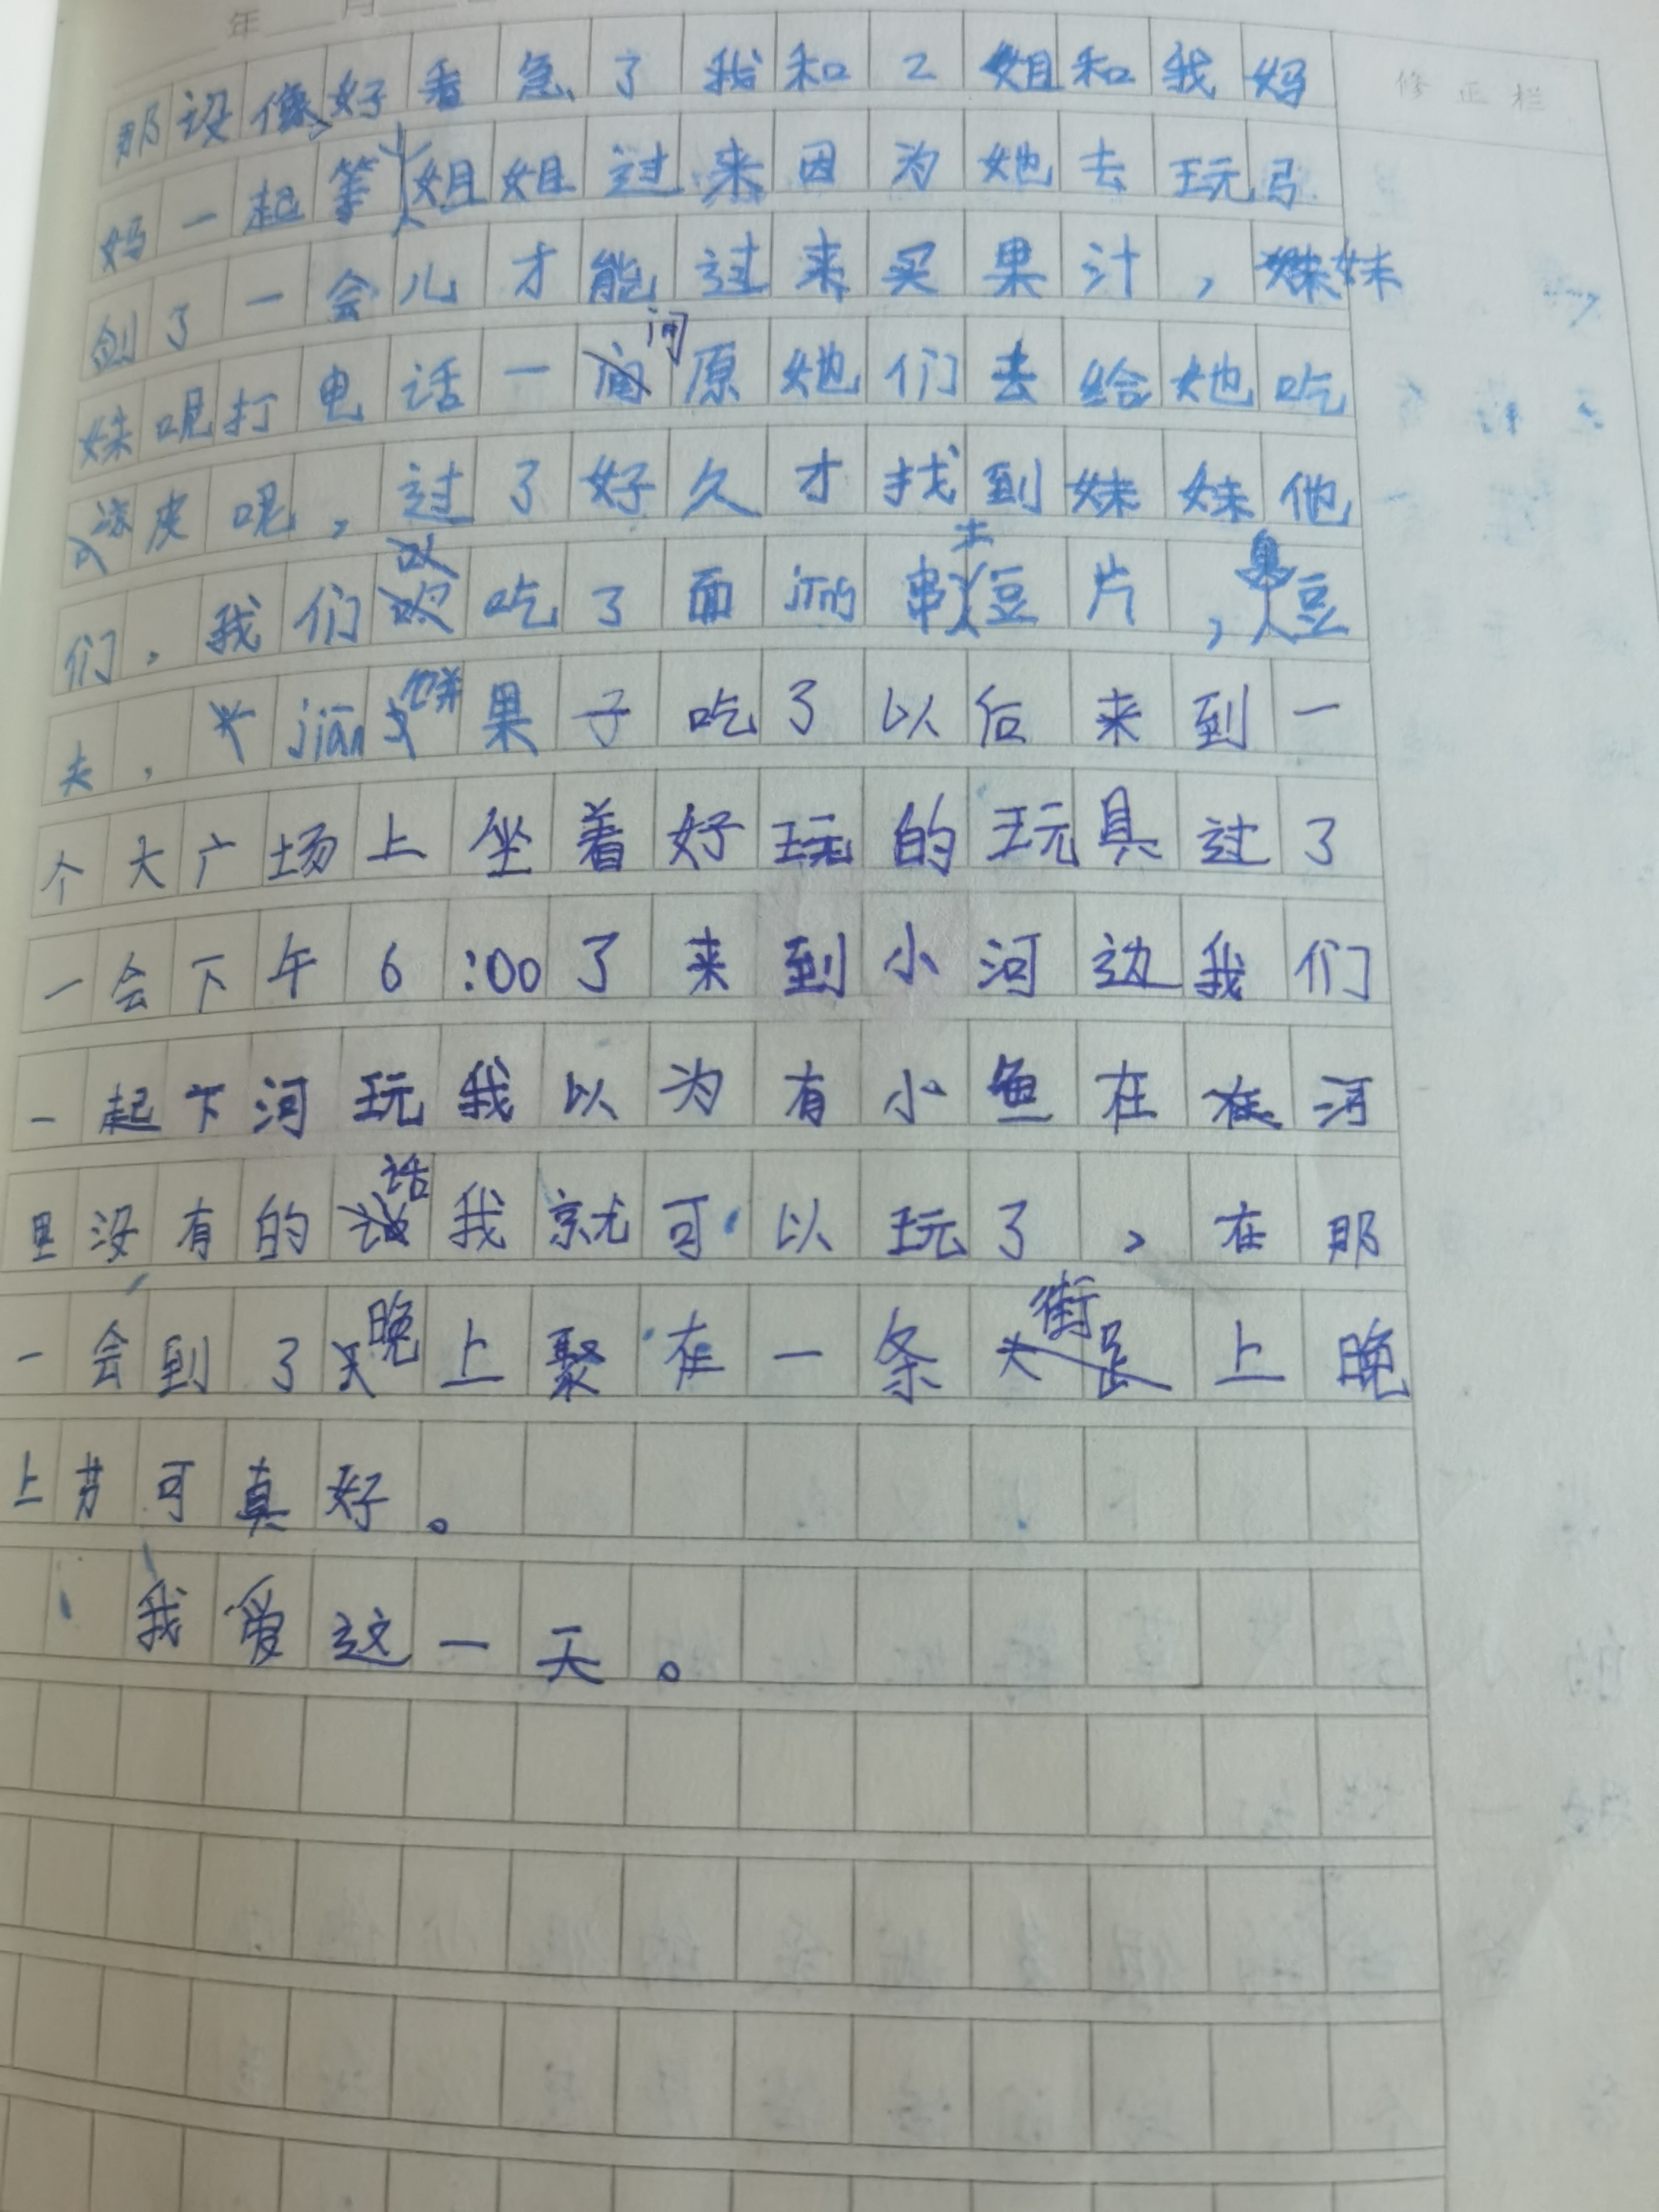 年 月
修正栏
那没像好看急了我和2姐和我妈
妈一起等大姐姐过来因为她去玩弓
剑了一会儿才能过来买果汁,妹
妹呢打电话一问原她们去给她吃
凉皮呢,过了好久才找到妹妹他
们,我们又吃了面jīng串土豆片,臭豆
夫,jiān饼果子吃了以后来到一
个大广场上坐着好玩的玩具过了
一会下午6:00了来到小河边我们
一起下河玩我以为有小鱼在河
里没有的话我就可以玩了,在那
一会到了晚上聚在一条街上晚
上可真好。
我爱这一天。